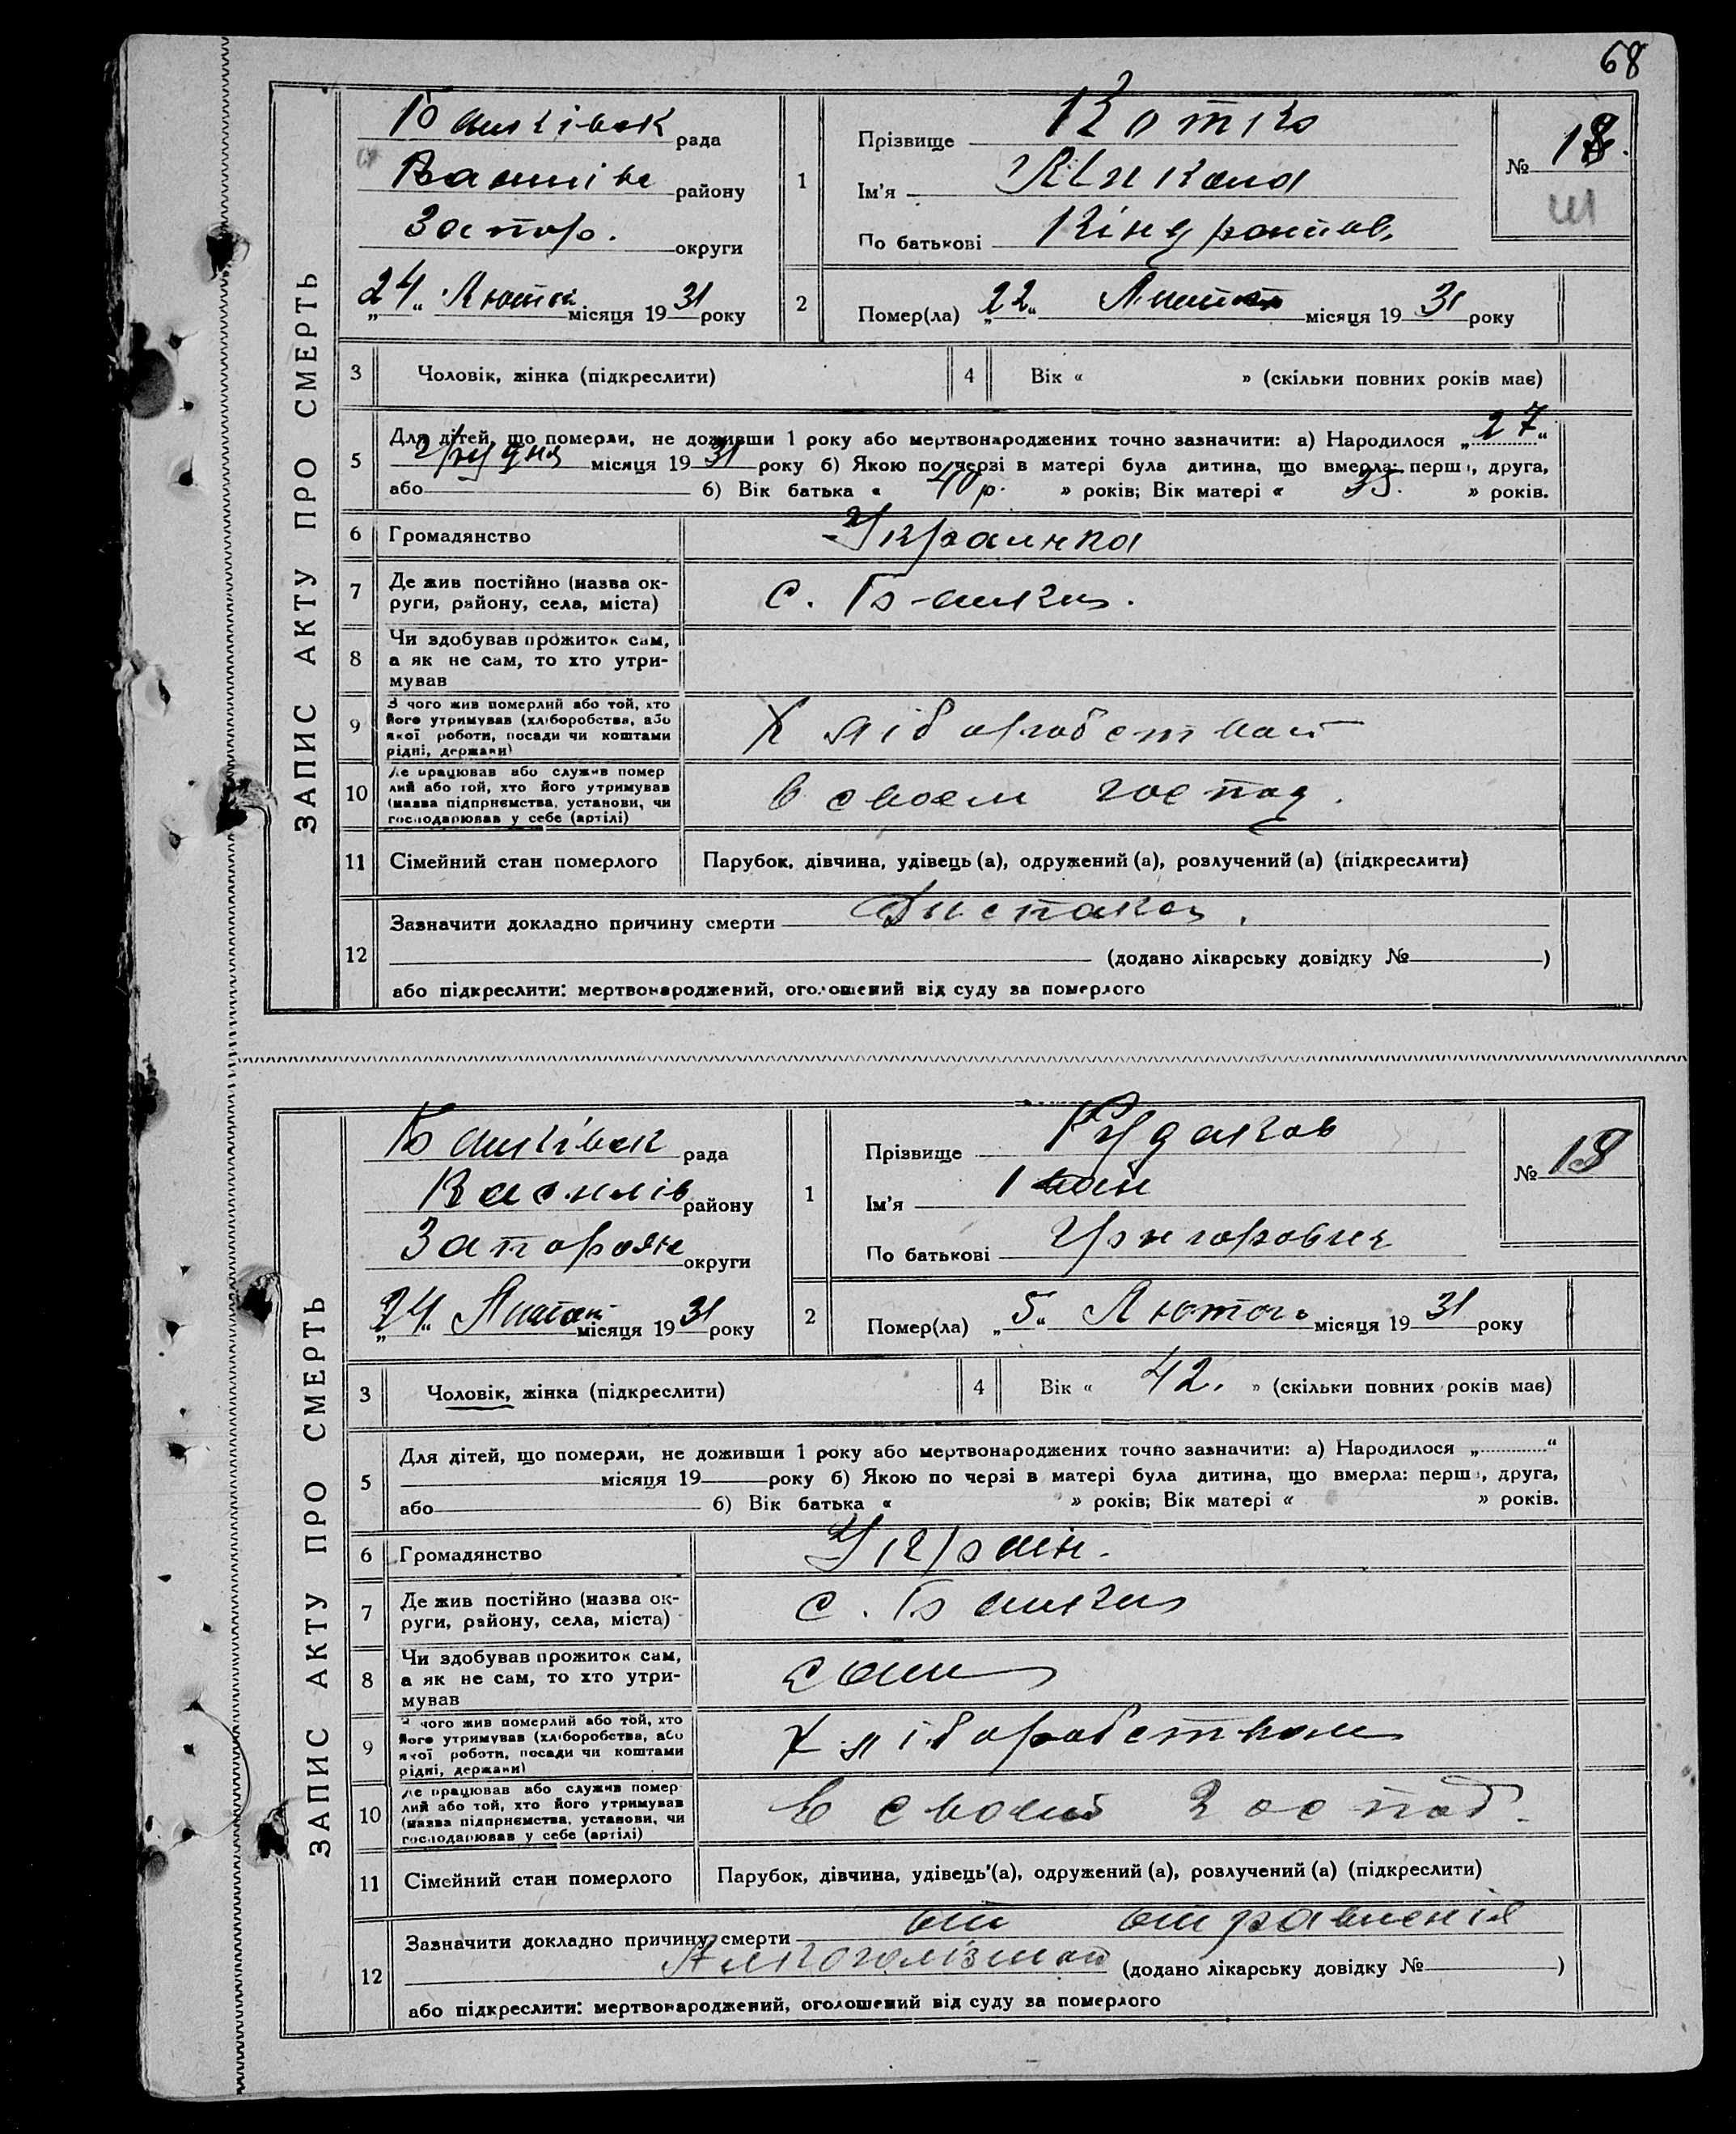 68
ЗАПИС АКТУ ПРО СМЕРТЬ
рада
району
Запор. округи
„24“ Лютня місяця 1931 року
1
Прізвище Котко
Ім'я Микола
По батькові Кіндратов.
№ 18.
2
Помер(ла) „22“ місяця 1931 року
3 Чоловік, жінка (підкреслити)
4 Вік « » (скільки повних років має)
5
Для дітей, що померли, не доживши 1 року або мертвонароджених точно зазначити: а) Народилося „27“
Грудня місяця 1931 року б) Якою по черзі в матері була дитина, що вмерла: перша, друга,
або б) Вік батька « 40 р. » років; Вік матері « 35. » років.
6 Громадянство Украинка
7 Де жив постійно (назва ок-
руги, району, села, міста) с. Башки.
8 Чи здобував прожиток сам,
а як не сам, то хто утри-
мував
9 З чого жив померлий або той, хто
його утримував (хліборобства, або
якої роботи, посади чи коштами
рідні, держави) Хліборобством
10 Де працював або служив помер
лий або той, хто його утримував
(назва підприємства, установи, чи
господарював у себе (артілі) в своем господ.
11 Сімейний стан померлого Парубок, дівчина, удівець (а), одружений (а), розлучений (а) (підкреслити)
12
Зазначити докладно причину смерти
(додано лікарську довідку № )
або підкреслити: мертвонароджений, оголошений від суду за померлого
ЗАПИС АКТУ ПРО СМЕРТЬ
рада
Василів району
Запорожс округи
„24“ місяця 1931 року
1
Прізвище Рудаков
Ім'я Іван
По батькові Григорович
№ 19
2
Помер(ла) „5“ Лютого місяця 1931 року
3 Чоловік, жінка (підкреслити)
4 Вік « 42. » (скільки повних років має)
5
Для дітей, що померли, не доживши 1 року або мертвонароджених точно зазначити: а) Народилося „ “
місяця 19 року б) Якою по черзі в матері була дитина, що вмерла: перша, друга,
або б) Вік батька « » років; Вік матері « » років.
6 Громадянство Украін.
7 Де жив постійно (назва ок-
руги, району, села, міста) с. Башки
8 Чи здобував прожиток сам,
а як не сам, то хто утри-
мував сам
9 З чого жив померлий або той, хто
його утримував (хліборобства, або
якої роботи, посади чи коштами
рідні, держави) Хліборобством
10 Де працював або служив помер
лий або той, хто його утримував
(назва підприємства, установи, чи
господарював у себе (артілі) в своем господ.
11 Сімейний стан померлого Парубок, дівчина, удівець (а), одружений (а), розлучений (а) (підкреслити)
12
Зазначити докладно причину смерти от отравленія
Алкоголізмом (додано лікарську довідку № )
або підкреслити: мертвонароджений, оголошений від суду за померлого